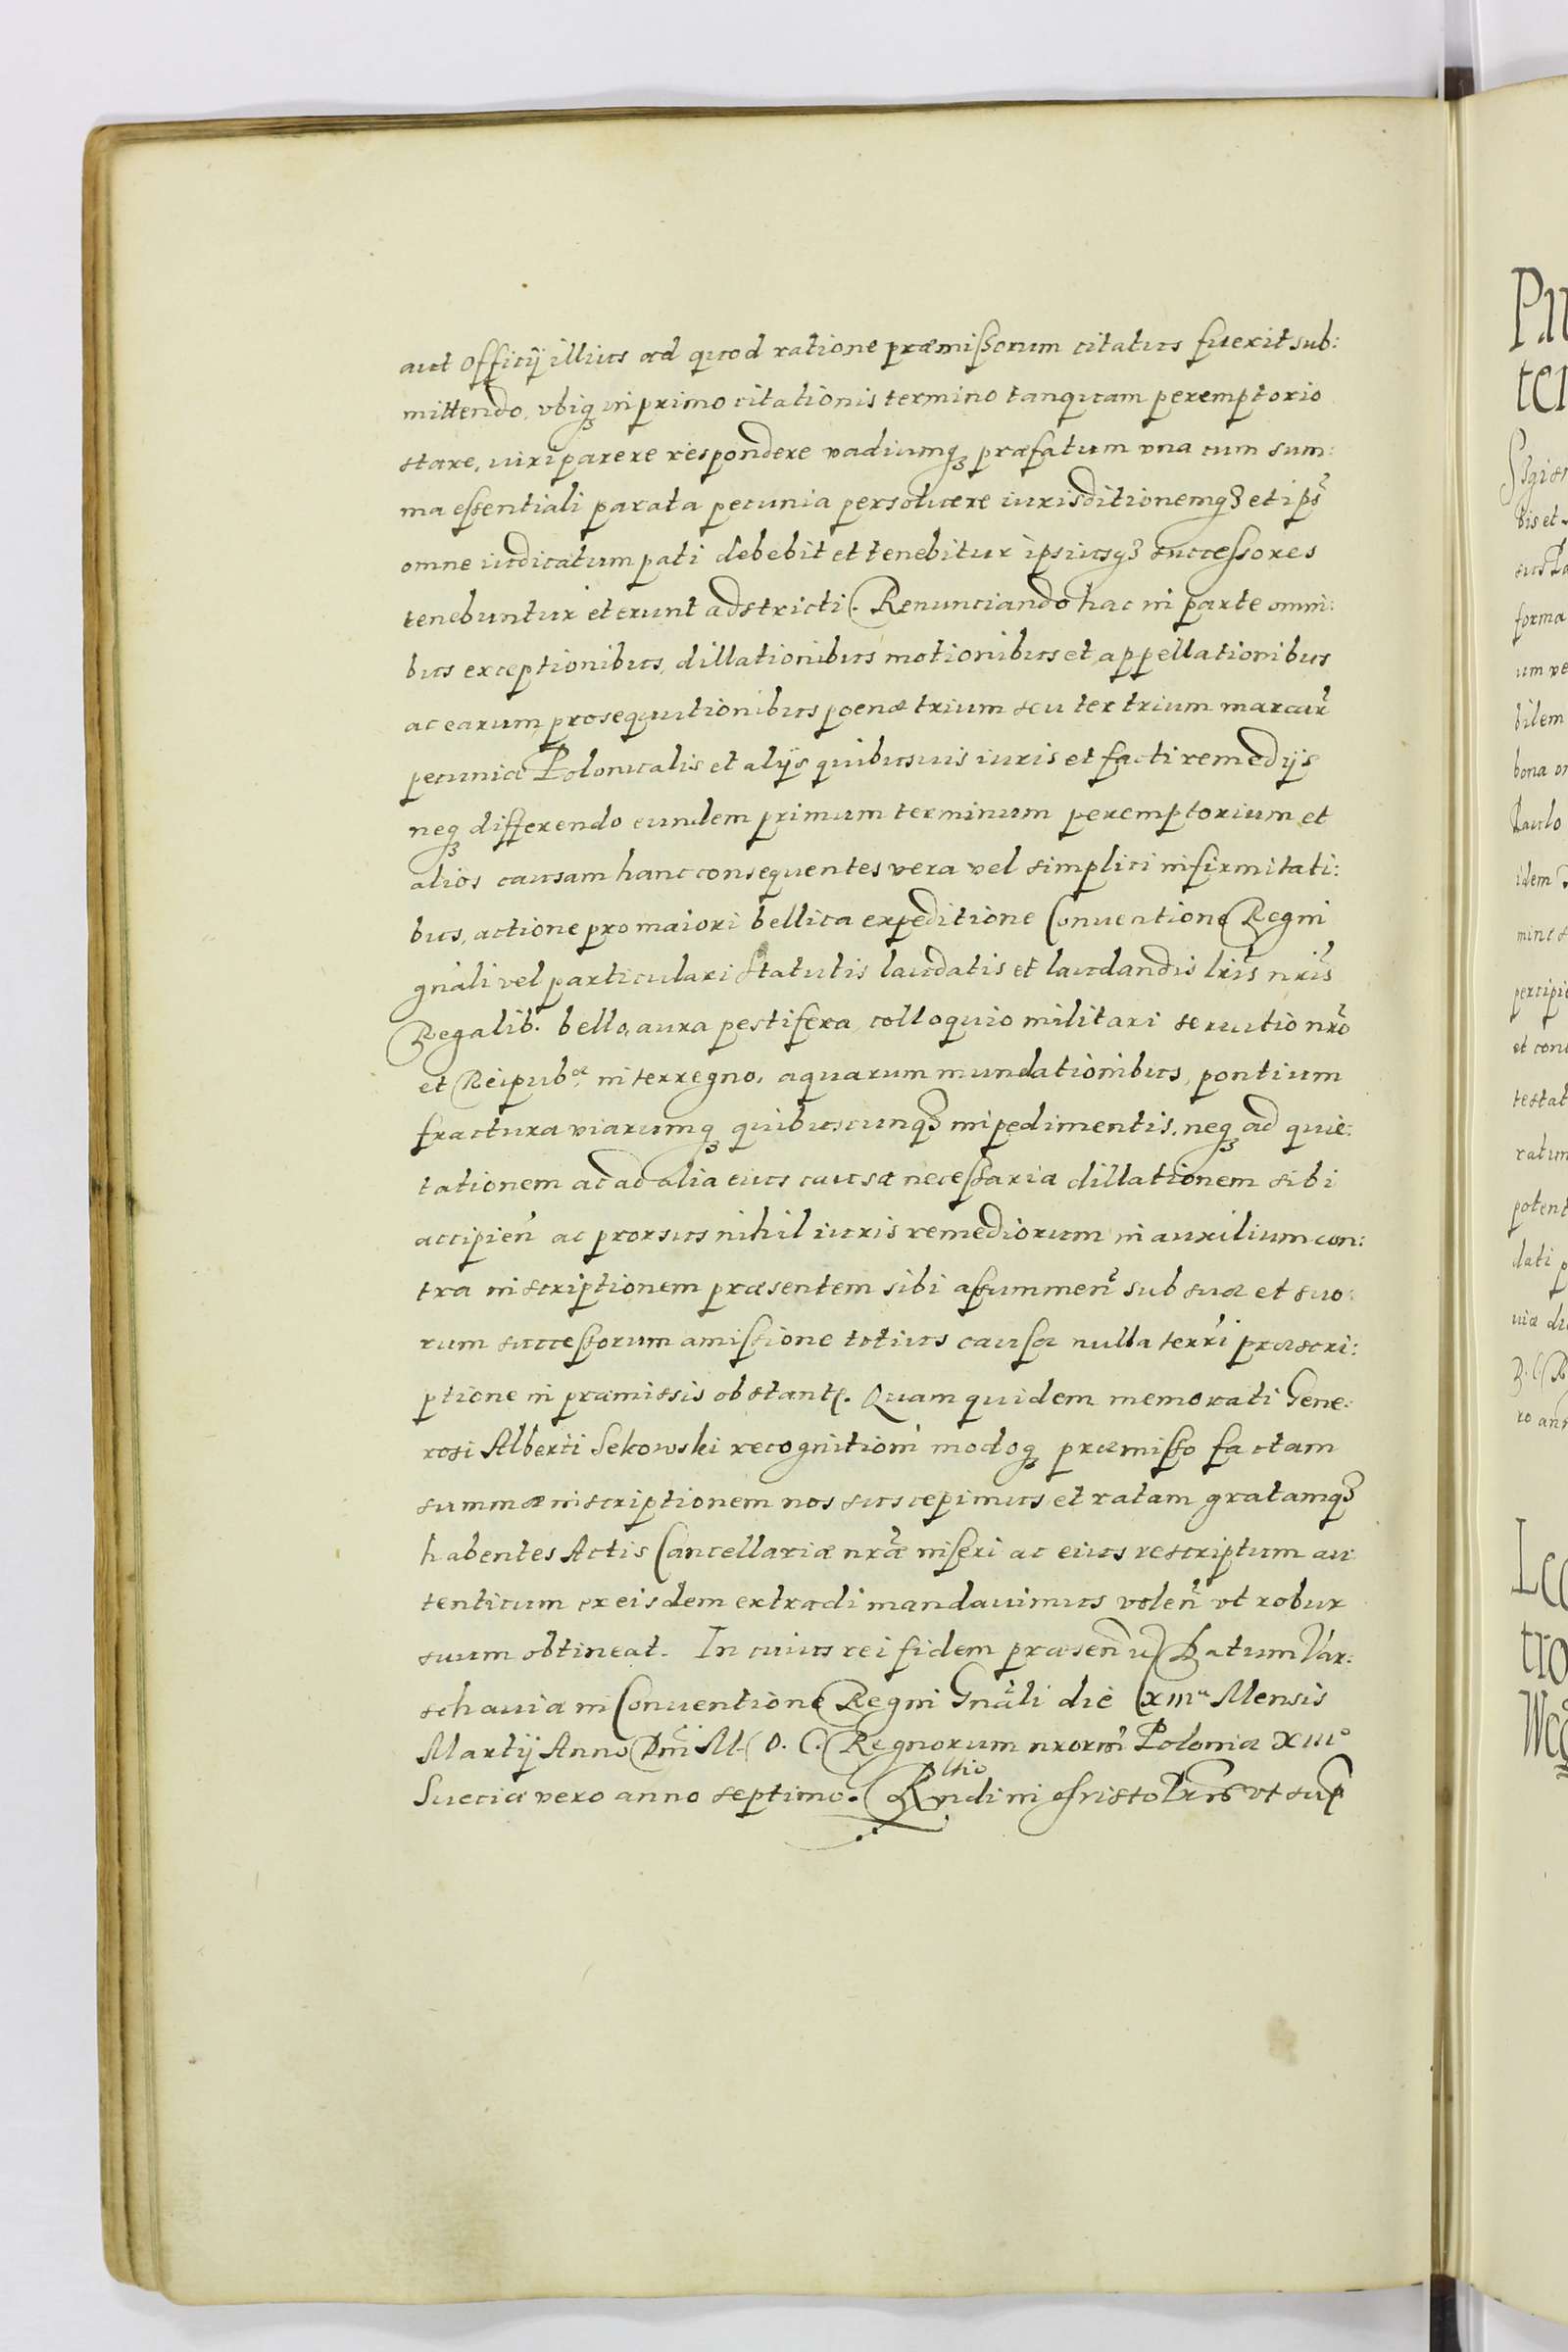 aut Officij illius ad quod ratione præmissorum citatus fuerit sub:
mittendo, vbiqʒ in primo citationis termino tanquam peremptorio
stare, iuri parere respondere vadiumqʒ præfatum vna cum sum:
ma essentiali parata pecunia persoluere iurisditionemqʒ et ips̃
omne iudicatum pati debebit et tenebitur ipsiusqʒ successores
tenebuntur et erunt adstricti. Renunciando hac in parte omni:
bus exceptionibus, dillationibus motionibus et appellationibus
ac earum prosequutionibus poenæ trium seu ter trium marcar̃
pecuniæ Polonicalis et alijs quibusuis iuris et facti remedijs
neqʒ differendo eundem primum terminum peremptorium et
alios causam hanc consequentes vera vel simplici infirmitati:
bus, actione pro maiori bellica expeditione Conuentione Regni
gnãli vel particulari Statutis laudatis et laudandis lris̃ nris̃
Regalib. bello, aura pestifera, colloquio militari seruitio nrõ
et Reipub.æ interregno, aquarum inundationibus, pontium
fractura viarumqʒ quibuscunqʒ impedimentis, neqʒ ad quie:
tationem ac ad alia eius causæ necessaria dillationem sibi
accipien̄ ac prorsus nihil iuris remediorum in auxilium con:
tra inscriptionem præsentem sibi assummen̄ sub sua et suo:
rum successorum amissione totius causæ nulla terr̃i præscri:
ptione in præmissis obstante. Quam quidem memorati Gene:
rosi Alberti Sekowski recognitioni modoqʒ præmisso factam
summæ inscriptionem nos suscepimus et ratam gratamqʒ
habentes Actis Cancellariæ nrã̃e inseri ac eius rescriptum au
tenticum ex eisdem extradi mandauimus volen̄ vt robur
suum obtineat. In cuius rei fidem præsen̄ Datum Var:
schauiæ in Conuentione Regni Gnãli die XIIIª Mensis
Martij Anno Dn̄i M. D. C. Regnorum nrorm̃ Poloniæ XIII°
Sueciæ vero anno septimo. vt sup